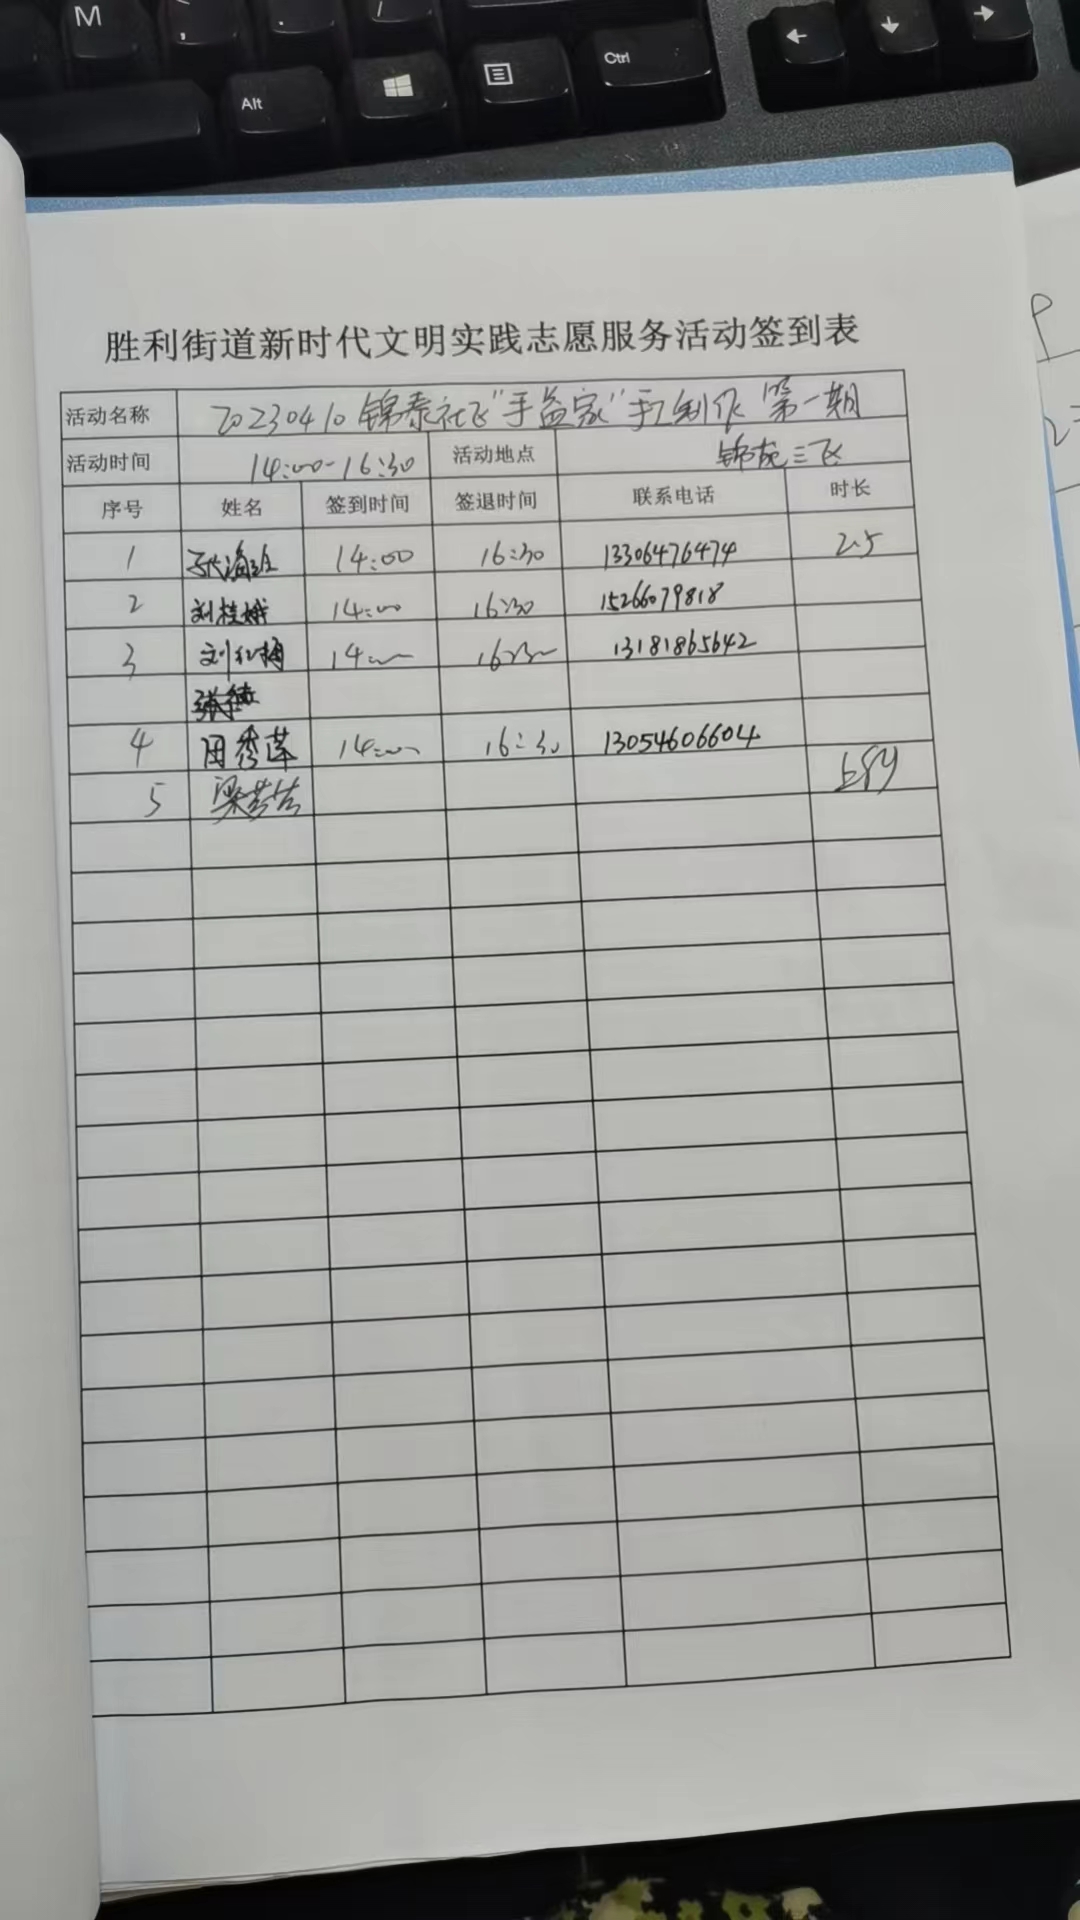 M
Alt
Ctrl
胜利街道新时代文明实践志愿服务活动签到表
活动名称 20230410锦泰社区"手益家"手工制作 第一期
活动时间 14:00-16:30 活动地点 锦苑三区
序号 姓名 签到时间 签退时间 联系电话 时长
1 14:00 16:30 13306476474 2.5
2 刘桂娥 14:00 16:30 15266079818
3 刘红梅 14:00 16:30 13181865642
4 田秀莲 14:00 16:30 13054606604
5 梁